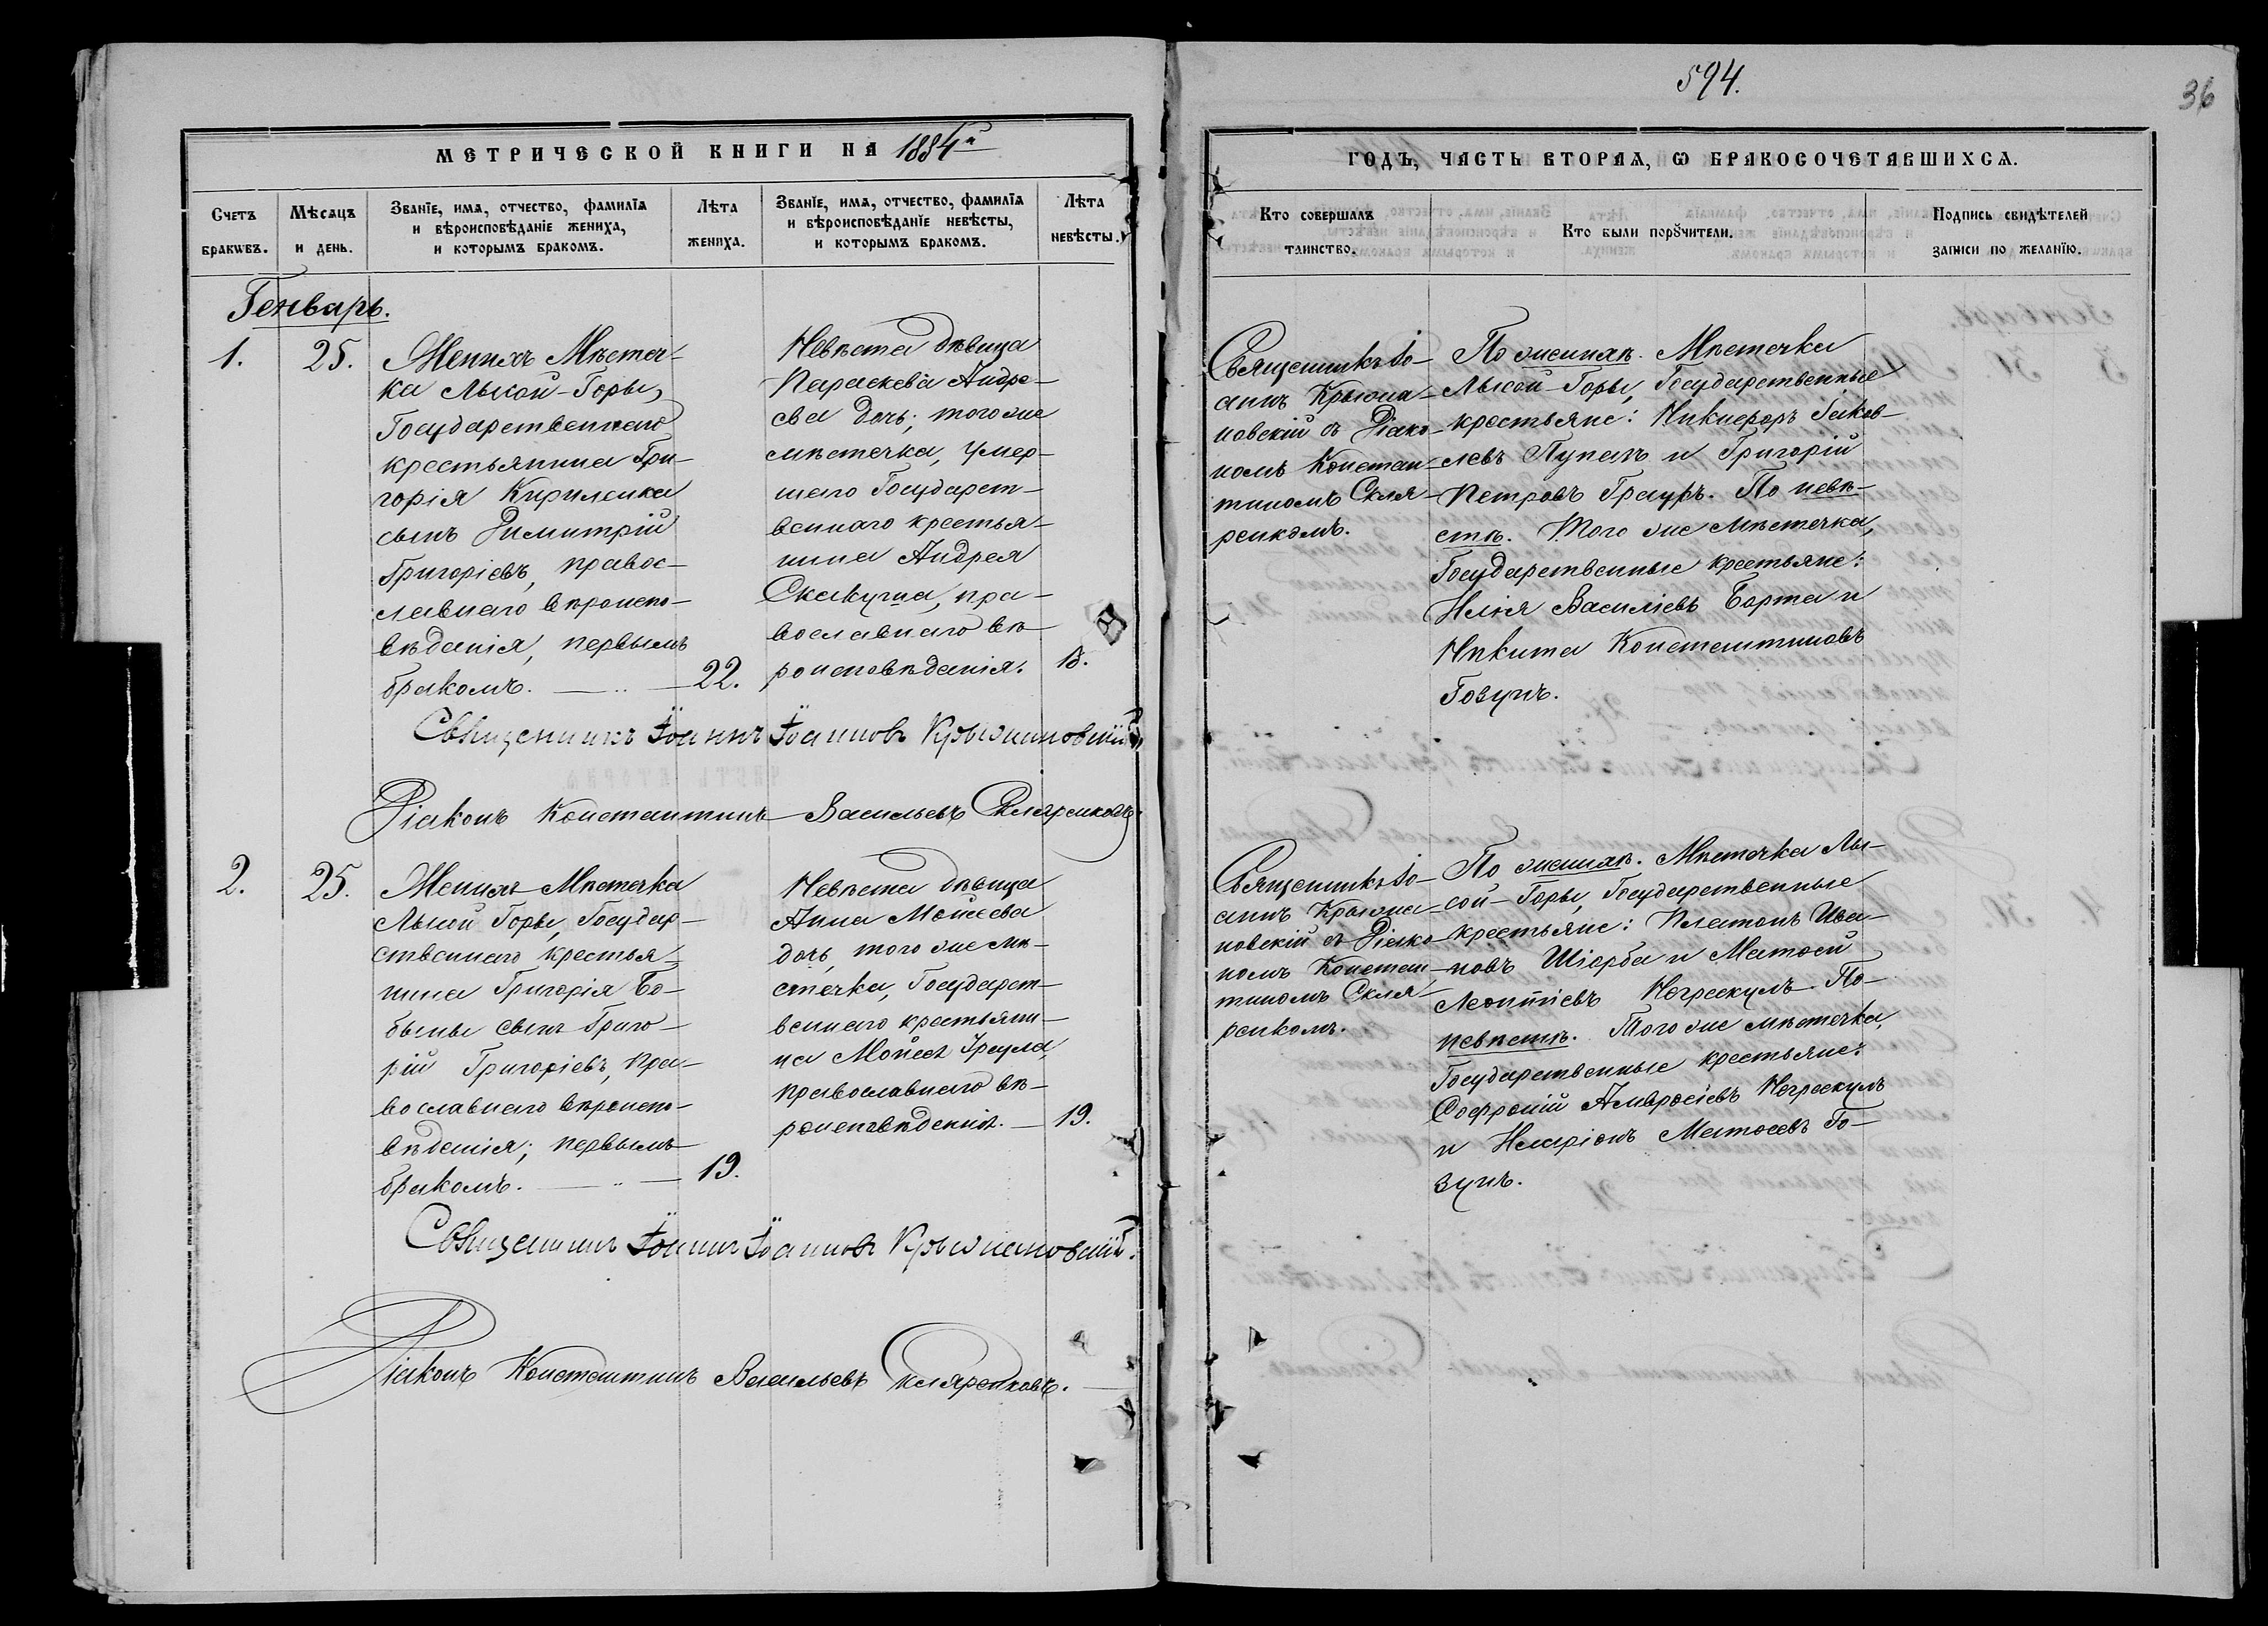 594.
36
МЕТРИЧЕСКОЙ КНИГИ НА 1884й
ГОДЪ, ЧАСТЬ ВТОРАЯ, Ѡ БРАКОСОЧЕТАВШИХСЯ.
Счетъ браковъ.
Мѣсяцъ и день.
Званїе, имя, отчество, фамилїя
и вѣроисповѣданїе жениха,
и которымъ бракомъ.
Лѣта жениха.
Званїе, имя, отчество, фамилїя
и вѣроисповѣданїе невѣсты,
и которымъ бракомъ.
Лѣта невѣсты.
Кто совершалъ
таинство.
Кто были порꙋчители.
Подпись свидѣтелей
записи по желанїю.
Генварь.
1.
25.
Женихъ Мѣстеч-
ка Лысой-Горы,
Государственнаго
крестьянина Гри-
горія Кириленка
сынъ Димитрій
Григоріевъ, правос-
лавнаго вѣроиспо-
вѣданія, первымъ
бракомъ. 22.
Невѣста дѣвица
Параскева Андре-
ева дочь; того же
мѣстечка, умер-
шаго Государст-
веннаго крестья-
нина Андрея
Скакуна, пра-
вославнаго вѣ-
роисповѣданія.
Священникъ Іо-
аннъ Крыжа-
новскій съ Діако-
номъ Констан-
тиномъ Скля-
ренкомъ.
По женихѣ. Мѣстечка
Лысой-Горы, Государственные
крестьяне: Никифоръ Іаков-
левъ Пупакъ и Григорій
Петровъ Грауръ. По невѣ-
стѣ. Того же мѣстечка,
Государственные крестьяне:
Илія Василіевъ Борта и
Никита Константиновъ
Гозунъ.
Священникъ Іоаннъ Іоанновъ Крыжановскій
Діаконъ Константинъ Васильевъ Скляренковъ.
2.
25.
Женихъ Мѣстечка
Лысой Горы, Государ-
ственнаго крестья-
нина Григорія Бо-
быны сынъ Григо-
рій Григоріевъ, пра-
вославнаго вѣроиспо-
вѣданія; первымъ
бракомъ. 19.
Невѣста дѣвица
Анна Моисеева
дочь, того же мѣ-
стечка, Государст-
веннаго крестьяни-
на Моисея
православнаго вѣ-
роисповѣданія. 19.
Священникъ Іо-
аннъ Крыжа-
новскій съ Діако-
номъ Констан-
тиномъ Скля-
ренкомъ.
По женихѣ. Мѣстечка Лы-
сой-Горы, Государственные
крестьяне: Платонъ Ива-
новъ Шіорба и Матөей
Леонтіевъ Негрескулъ. По
невѣстѣ. Того же мѣстечка,
Государственные крестьяне:
Софроній Амвросіевъ Негрескулъ
и Иларіонъ Матөеевъ Го-
зунъ.
Священникъ Іоаннъ Іоанновъ Крыжановскій.
Діаконъ Константинъ Васильевъ Скляренковъ.